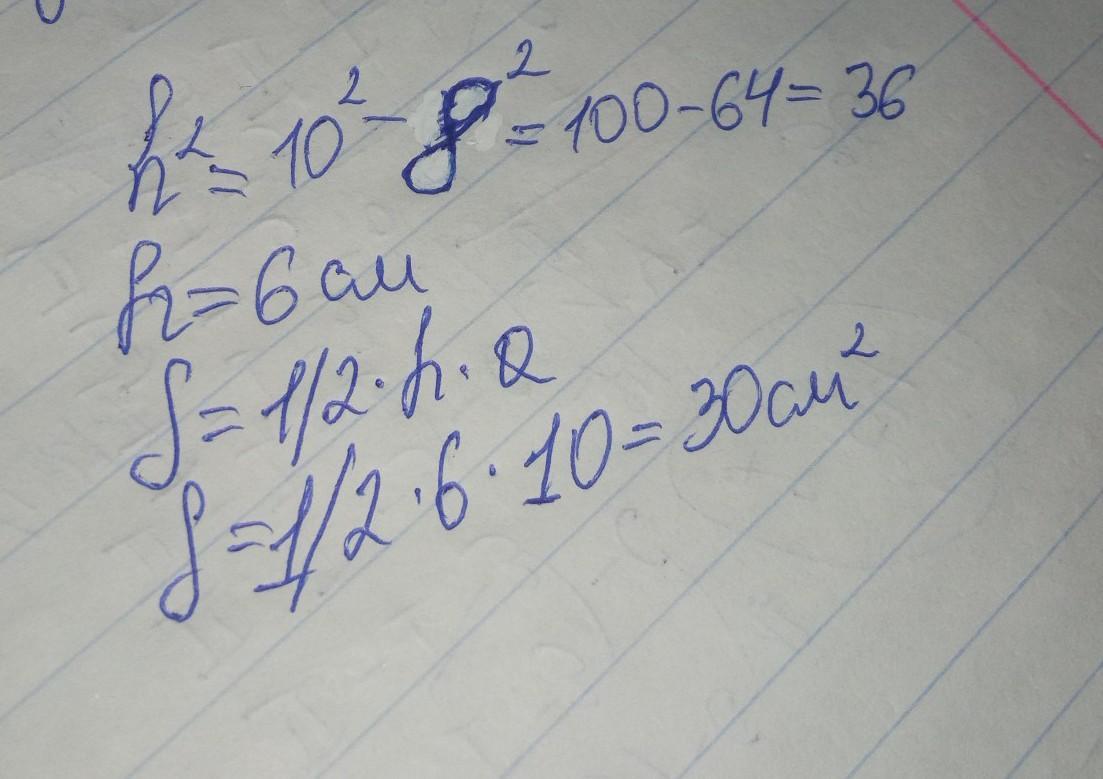 h² = 10² - 8² = 100 - 64 = 36
h = 6 см
S = 1/2 · h · a
S = 1/2 · 6 · 10 = 30 см²